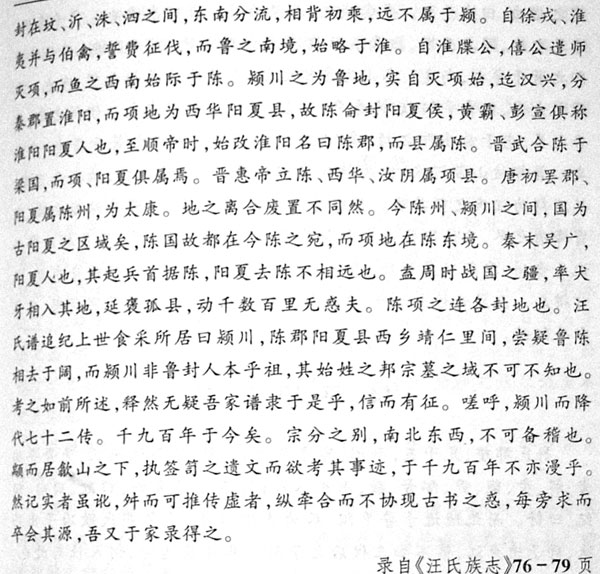 封在坟、沂、洙、泗之间,东南分流,相背初乘,远不属于颍。自徐戎、淮
夷并与伯禽,誓费征伐,而鲁之南境,始略于淮。自淮牒公,僖公遣师
灭项,而鱼之西南始际于陈。颍川之为鲁地,实自灭项始,迄汉兴,分
秦郡置淮阳,而项地为西华阳夏县,故陈俞封阳夏侯,黄霸、彭宣俱称
淮阳阳夏人也,至顺帝时,始改淮阳名曰陈郡,而县属陈。晋武合陈于
梁国,而项、阳夏俱属焉。晋惠帝立陈、西华、汝阴属项县。唐初罢郡、
阳夏属陈州,为太康。地之离合废置不同然。今陈州、颍川之间,国为
古阳夏之区域矣,陈国故都在今陈之宛,而项地在陈东境。秦末吴广,
阳夏人也,其起兵首据陈,阳夏去陈不相远也。盍周时战国之疆,率犬
牙相入其地,延褒孤县,动千数百里无惑夫。陈项之连各封地也。汪
氏谱追纪上世食采所居曰颍川,陈郡阳夏县西乡靖仁里间,尝疑鲁陈
相去于阔,而颍川非鲁封人本乎祖,其始姓之邦宗墓之域不可不知也。
考之如前所述,释然无疑吾家谱隶于是乎,信而有征。嗟呼,颍川而降
代七十二传。千九百年于今矣。宗分之别,南北东西,不可备稽也。
颛而居歙山之下,执签笥之遗文而欲考其事迹,于千九百年不亦漫乎。
然记实者虽讹,舛而可推传虚者,纵牵合而不协现古书之惑,每旁求而
卒会其源,吾又于家录得之。
录自《汪氏族志》76-79页